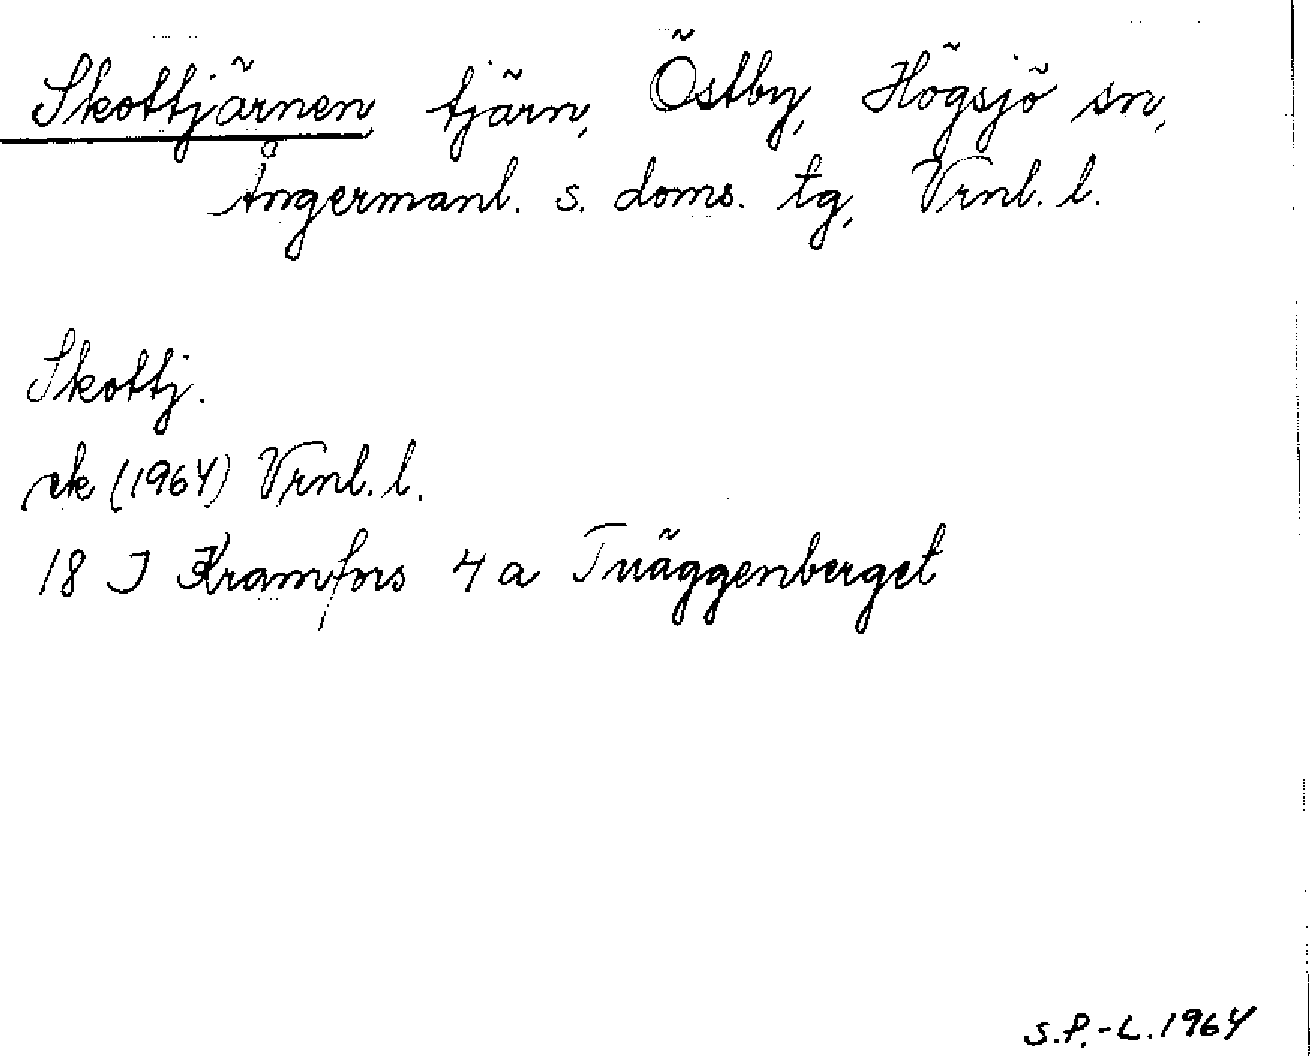 Skottjärnen, tjärn, Östby, Högsjö sn,
Ångermanl. s. doms. tg, Vrnl. l.
Skottj.
ek (1964) Vrnl. l.
18 J Kramfors 4 a Tväggenberget
S.P.-L. 1964